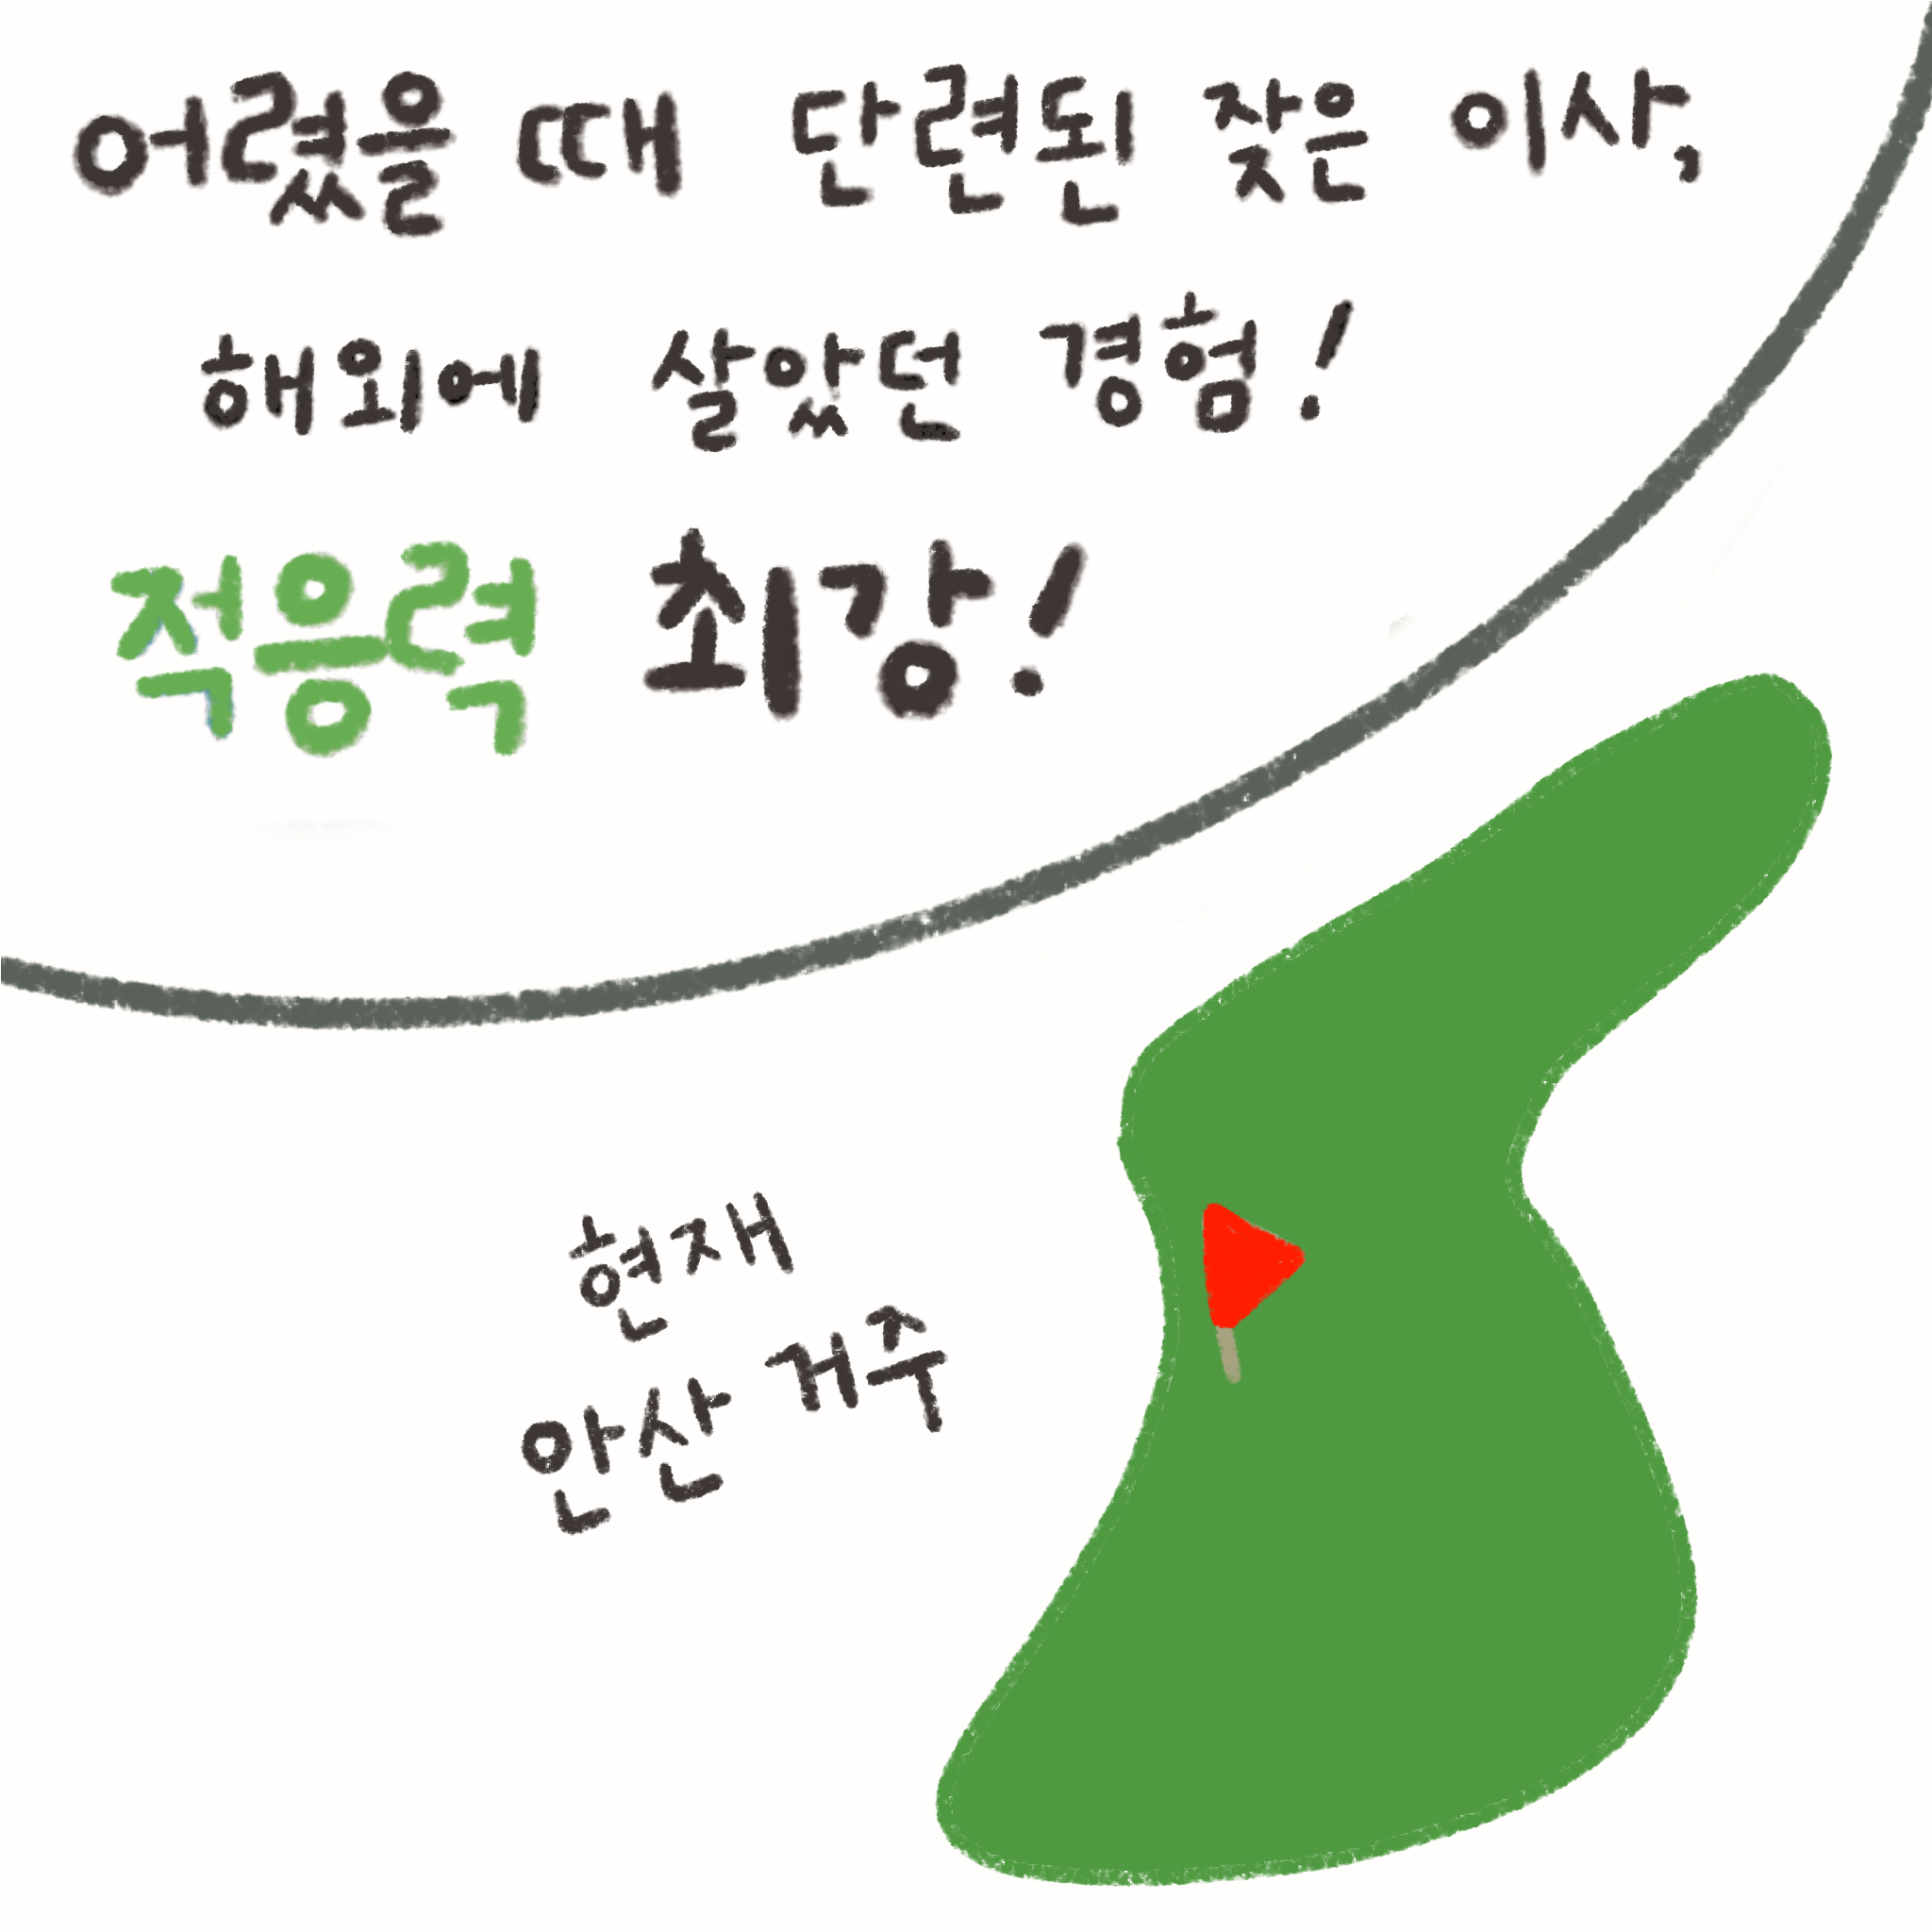 어렸을 때 단련된 잦은 이사,
해외에 살았던 경험!
적응력 최강!
현재
안산 거주